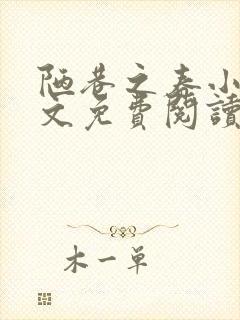 陋巷之春小
文免費閱讀
木一單